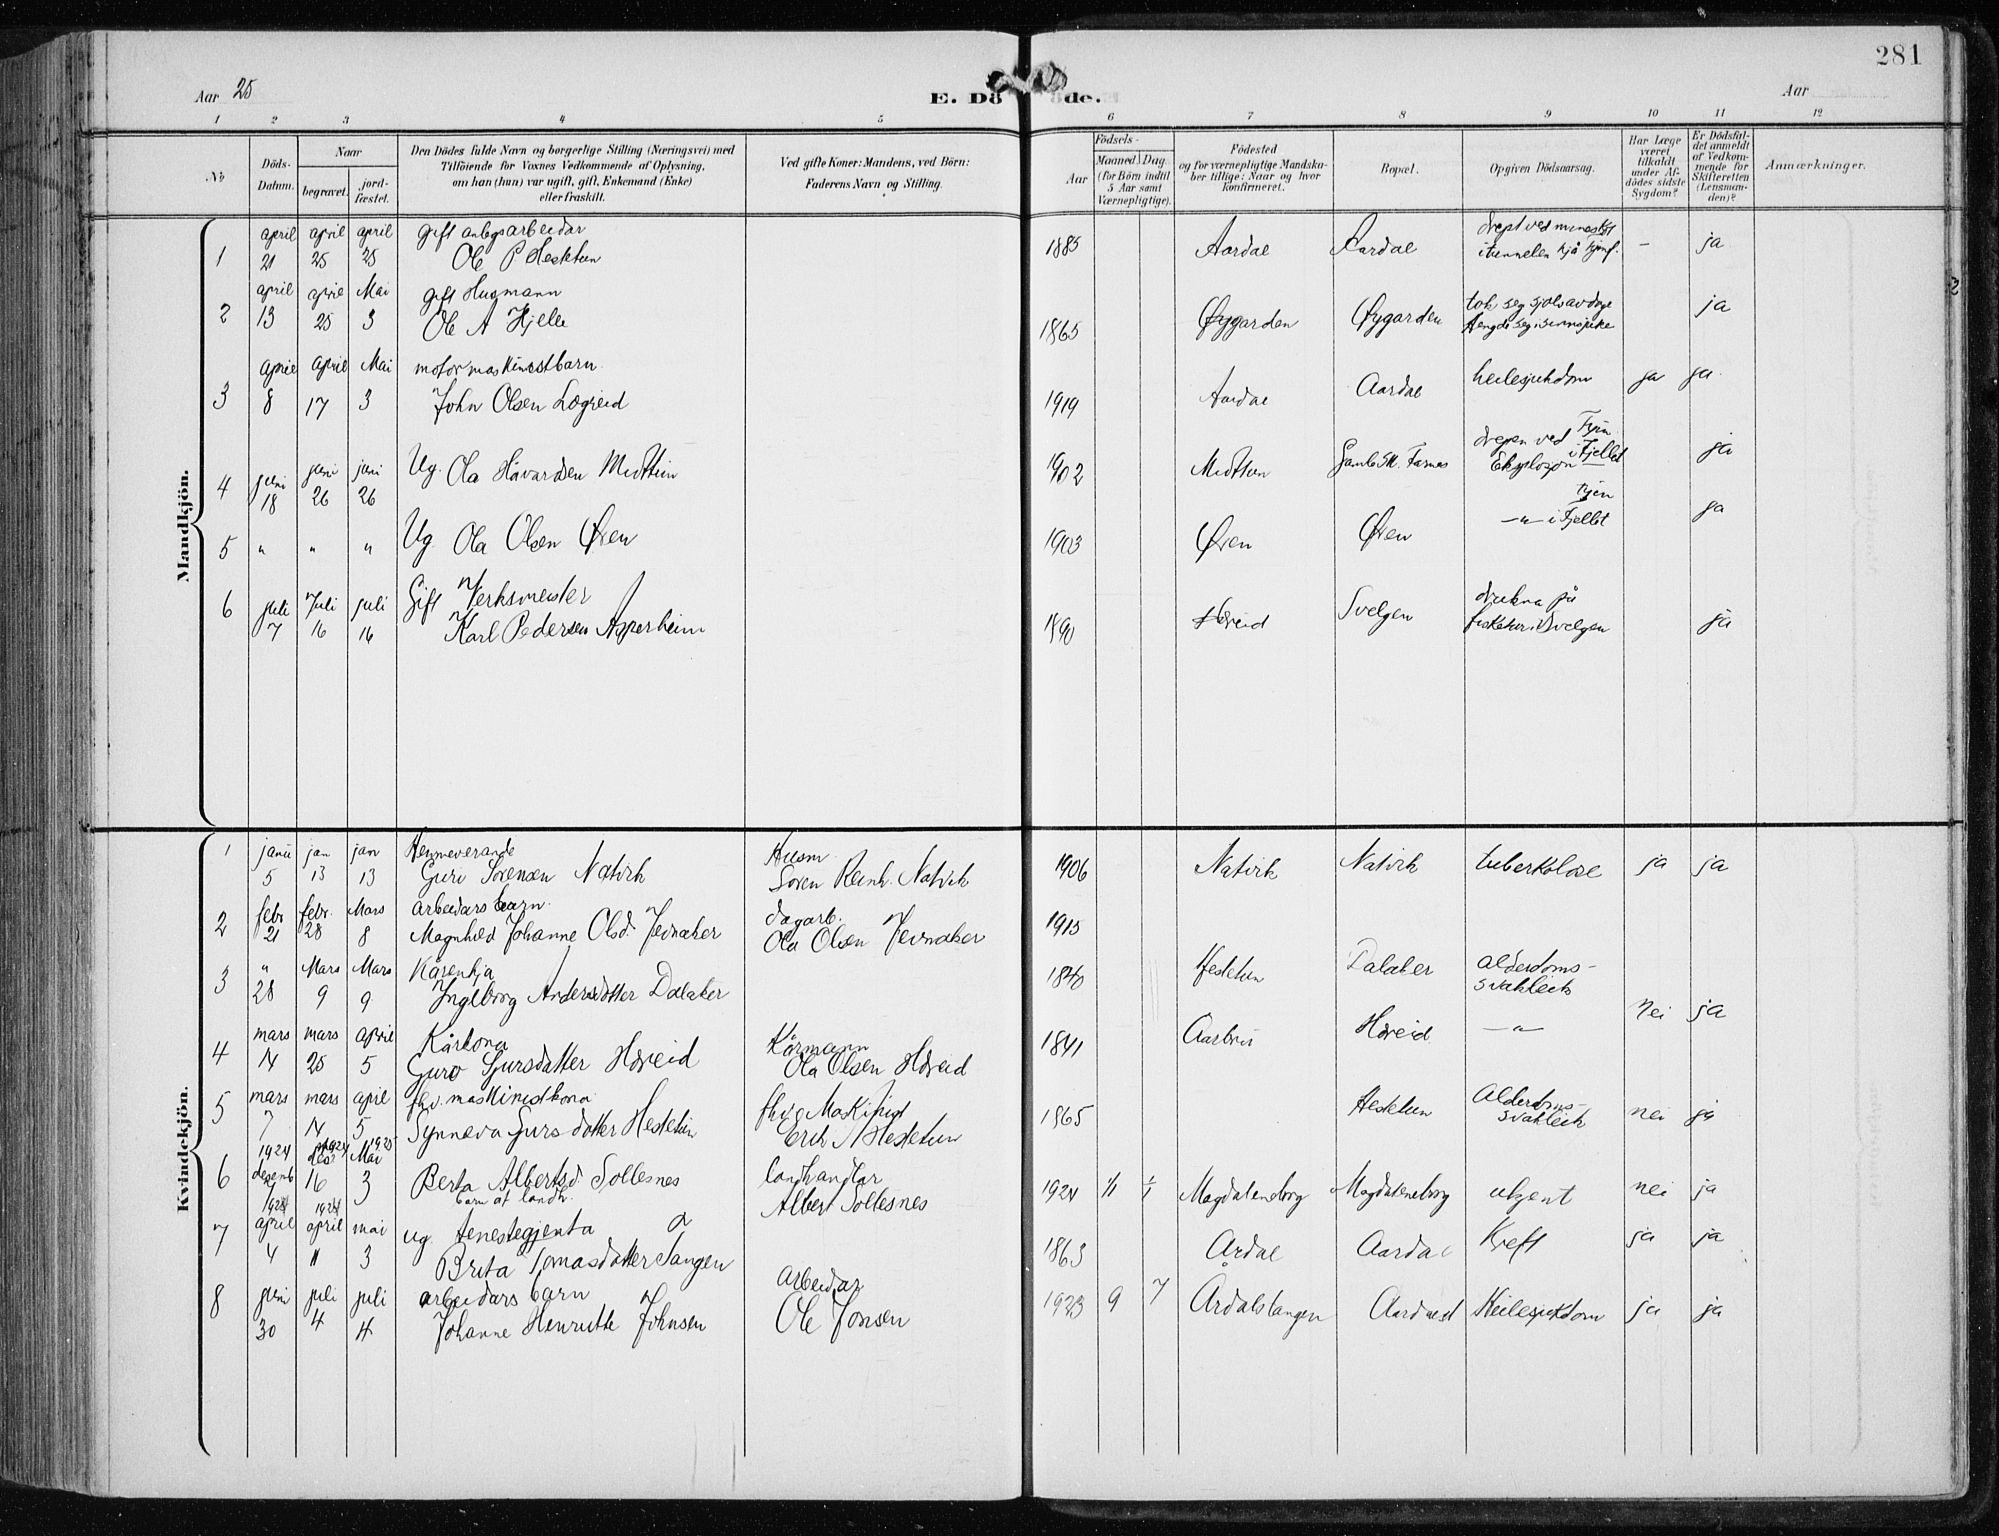 281
Aar 25
E. Döde.
Aar
1 2 3 4 5 6 7 8 9 10 11 12
No
Döds-Datum.
Naar
begravet.
jord-fæstet.
Den Dödes fulde Navn og borgerlige Stilling (Næringsvei) med
Tilföiende for Voxnes Vedkommende af Oplysning,
om han (hun) var ugift, gift, Enkemand (Enke)
eller fraskilt.
Ved gifte Koner: Mandens, ved Börn:
Faderens Navn og Stilling.
Födsels-
Aar
Maaned Dag
(for Börn indtil
5 Aar samt
Værnepligtige).
Födested
og for værnepligtige Mandska-
ber tillige: Naar og hvor
konfirmeret.
Bopæl.
Opgiven Dödsaarsag.
Har Læge
været
tilkaldt
under Af-
dödes sidste
Sygdom?
Er Dödsfal-
det anmeldt
af Vedkom-
mende for
Skifteretten
(Lensman-
den)?
Anmærkninger.
Mandkjön.
1 april 21 april 25 april 25 gift anlegsarbeidar
Ole P Hestetun 1885 Aardal Aardal drept ved
i tunnelen hjå - ja
2 april 13 april 25 Mai 3 gift Husmann
Ole A Hjelle 1865 Øygarden Øygarden tok seg sjølv av dage
hengde seg i ja
3 april 8 april 17 Mai 3 motormaskinistbarn
John Olsen Lægreid 1919 Aardal Aardal heilesjukdom ja ja
4 juni 18 juni 26 juni 26 Ug. Ola Håvardsen Midttun 1902 Midttun Farnes drepen ved Tyin
Eksplosjon i Fjellet ja
5 " " " Ug. Ola Olsen Øren 1903 Øren Øren Tyin
-"- i Fjellet ja
6 juli 7 Juli 16 juli 16 Gift Verksmeister
Karl Pedersen Asperheim 1890 Hæreid Svelgen drukna på
fisketur i Svelgen ja
Kvindekjön.
1 janu 5 jan 13 jan 13 Heimeverande
Guri Sørensen Natvik Husm.
Søren Reinh. Natvik 1906 Natvik Natvik tuberkolose ja ja
2 febr 21 febr. 28 Mars 8 arbeidarsbarn.
Magnhild Johanne Olsd. Jevnaker dagarb.
Ola Olsen Jevnaker 1915
3 " 28 Mars 9 Mars 9 Kårenkja
Ingeborg Andersdotter Dalaker 1840 Hestetun Dalaker alderdoms-
svakleik
4 mars 14 mars 25 april 5 Kårkona
Guro Sjursdatter Hæreid Kårmann
Ola Olsen Hæreid 1841 Hæreid -"- nei ja
5 mars 7 mars 14 april 5 fhv. maskinistkona
Synneva Sjursdotter Hestetun fhv. Maskinist
Erik N Hestetun 1865 Hestetun Alderdoms-
svakleik nei ja
6 1924 desemb 1 1924 des 16 1925 Mai 3 Berta Albertsd. Sollesnes
barn af landh. landhandlar
Albert Sollesnes 1924 1/1 Magdalenaborg Magdalenaborg ukjent nei ja
7 1925 april 4 1925 april 11 mai 3 ug. tenestegjenta
Brita Tomasdotter Tangen 1863 Årdal Aardal Kreft ja ja
8 juni 30 juli 4 juli 4 arbeidars barn
Johanne Henriette Johnsen Arbeidar
Ole Jonsen 1923 9 7 Årdalstangen Aardal Heilesjukdom ja ja